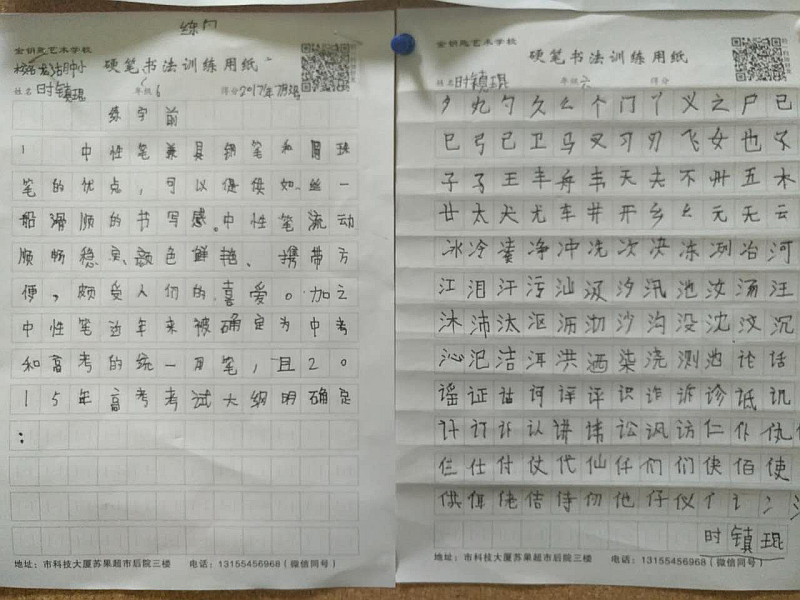 练门
金钥匙艺术学校
硬笔书法训练用纸
姓名 时镇琨 年级 6 得分 2017年7月
练字前
1 中性笔兼具钢笔和圆珠
笔的优点，可以便捷如丝一
般滑顺的书写感。中性笔流动
顺畅稳定、颜色鲜艳、携带方
便，颇受人们的喜爱。加之
中性笔近年来被确定为中考
和高考的统一用笔，且20
15年高考考试大纲明确定
：
地址：市科技大厦苏果超市后院三楼 电话：13155456968（微信同号）
金钥匙艺术学校
硬笔书法训练用纸
姓名 时镇琨 年级 六 得分
夕 丸 勺 久 么 个 门 丫 义 之 尸 己
巳 弓 已 卫 马 叉 习 刃 飞 女 也
子 孑 王 丰 舟 韦 天 夫 不 卅 五 木
廿 太 犬 尤 车 井 开 乡 元 无 云
冰 冷 凑 净 冲 冼 次 决 冻 冽 冶 河
江 泪 汗 污 汕 汲 汐 汛 池 汝 汤 汪
沐 沛 汰 沤 沥 沏 沙 沟 没 沈 汶 沉
沁 汜 洁 洱 洪 洒 染 浇 测 池 论 话
谣 证 诂 诃 详 评 识 诈 诉 诊 诋 讥
讣 订 讣 认 讲 讳 讼 讽 访 仁 仆 仇
仨 仕 付 仗 代 仙 仟 们 们 佚 佰 使
供 佴 佬 佶 侍 仞 他 仔 仪 亻 讠 冫
时镇琨
地址：市科技大厦苏果超市后院三楼 电话：13155456968（微信同号）